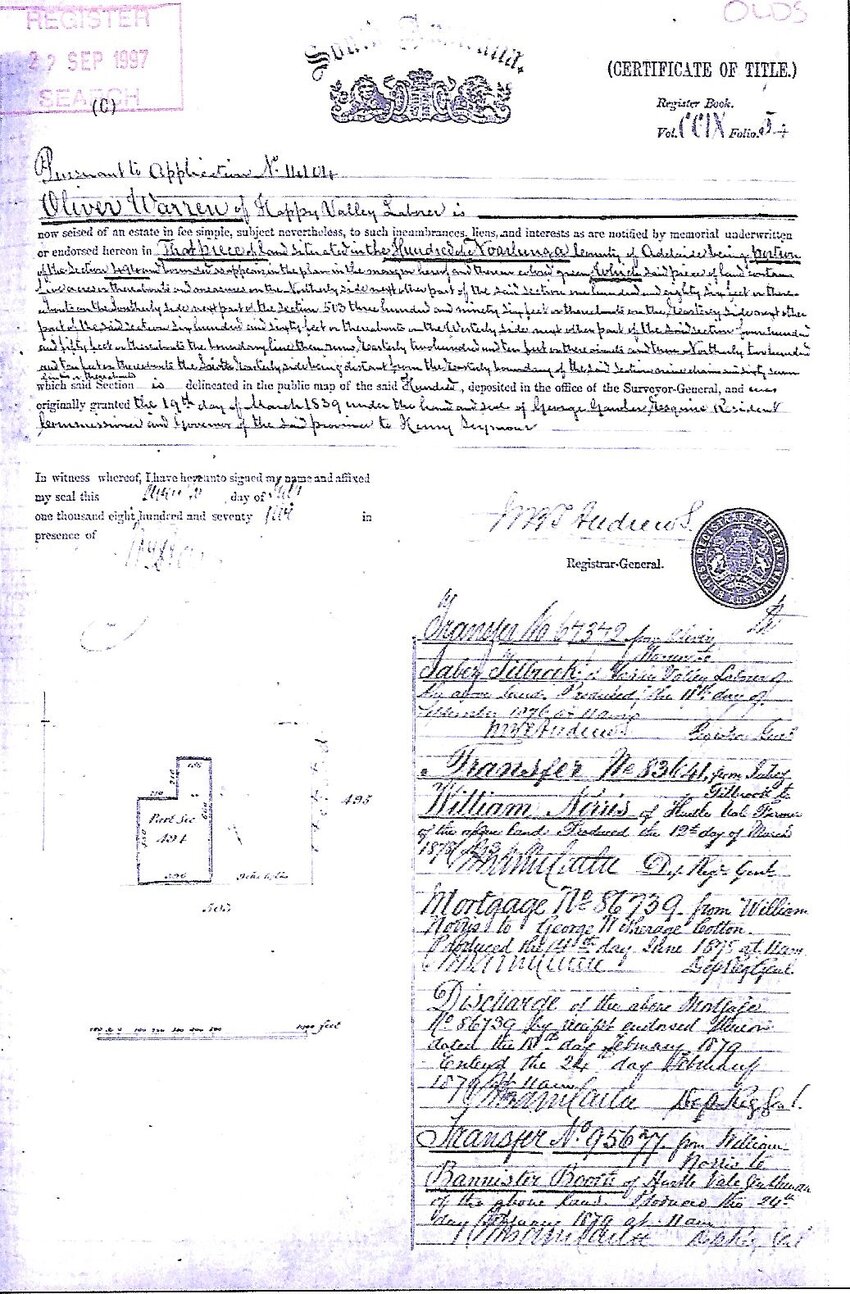 REGISTER
SEP 1997
SEARCH
OLDS
South Australia.
(CERTIFICATE OF TITLE.)
Register Book.
Vol. CCIX Folio
(C)
Pursuant to Application No. 14104
Oliver Warren of Happy Valley Laborer is
now seised of an estate in fee simple, subject nevertheless, to such incumbrances, liens, and interests as are notified by memorial underwritten
or endorsed hereon in That piece of land situated in the Hundred of Noarlunga County of Adelaide being portion
of the Section bounded as appears in the plan in the margin hereof and therein colored green, Which said piece of land contains
five acres or thereabouts and measures on the Northerly side next other part of the said section one hundred and eighty six feet or there-
abouts on the Southerly side next part of the Section 503 three hundred and ninety six feet or thereabouts on the Easterly side next other
part of the said section six hundred and sixty feet or thereabouts on the Westerly side next other part of the said section four hundred
and fifty feet or thereabouts the boundary line then runs Easterly two hundred and ten feet or thereabouts and then Northerly two hundred
and ten feet or thereabouts the South Easterly side being distant from the Easterly boundary of the said Section nine chains and sixty seven
links or thereabouts
which said Section is delineated in the public map of the said Hundred, deposited in the office of the Surveyor-General, and was
originally granted the 19th day of March 1839 under the hand and seal of George Gawler Esquire Resident
Commissioner and Governor of the said province to Henry Seymour
In witness whereof, I have hereunto signed my name and affixed
my seal this day of
one thousand eight hundred and seventy in
presence of
Andrews.
Registrar-General.
Transfer No 67342 from Oliver
Warren to
Jabez Tilbrook of Happy Valley Laborer of
the above land. Produced the 11th day of
1876 at 11am
Andrews
Transfer No 83641, from Jabez
Tilbrook to
William Norris of Hurtle Vale Farmer
of the above land. Produced the 12th day of March
187
Dep Regr Genl
Mortgage No 86739 from William
Norris to George Cotton
Produced the 14th day June 187 at 11am
Dep Reg Genl
Discharge of the above Mortgage
No 86739 by receipt endorsed thereon
dated the 18th day February 1879
Entered the 24th day February
1879 at 11am
Dep Reg Genl.
Transfer No 95677 from William
Norris to
Bannister Booth of Hurtle Vale Gentleman
of the above land. Produced the 24th
day February 1879 at 11am
186
210
210
Part Sec
494
450
660
396
495
503
1000 feet